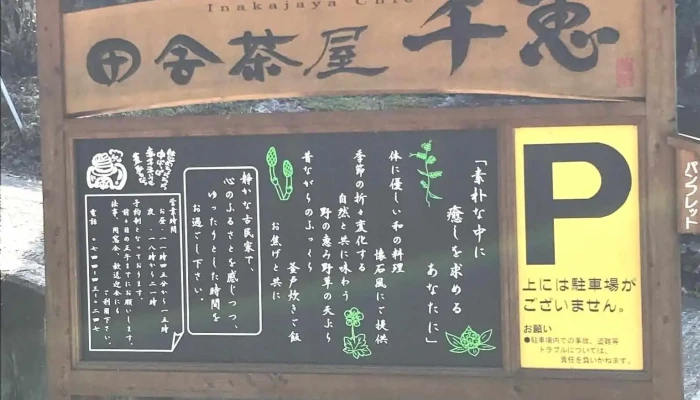 Inakajaya Chie
田舎茶屋 千恵
「素朴な中に
癒しを求める
あなたに」
体に優しい和の料理
懐石風にご提供
季節の折々変化する
自然と共に味わう
野の恵み野草の天ぷら
昔ながらのふっくら
釜戸炊きご飯
お焦げと共に
静かな古民家で、
心のふるさとを感じつつ、
ゆったりとした時間を
お過ごし下さい。
営業時間
お昼・一一時四五分から一五時
夜・一八時から二一時
予約制となっております。
前々日の正午までにお願いします。
法事、同窓会、歓迎会にも
ご利用下さい。
P
上には駐車場が
ございません。
お願い
●駐車場内での事故、盗難等
トラブルについては、
責任を負いかねます。
パンフレット